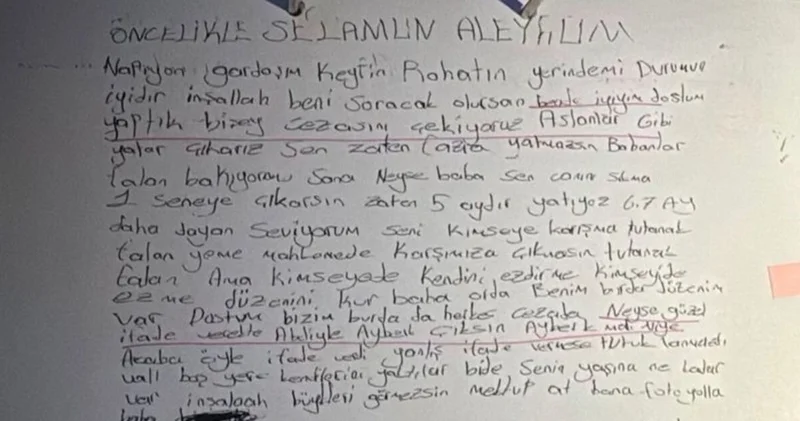 ÖNCELİKLE SELAMUN ALEYKÜM
Napıyon gardaşım Keyfin Rahatın yerindemi Durumun
iyidir inşallah beni Soracak olursan bende iyiyim dostum
yaptık bizey Cezasını çekiyoruz Aslanlar Gibi
yatar çıkarız Sen zaten fazla yatmazsın Babanlar
falan bakıyorsa Sana Neyse baba Sen canını sıkma
1 Seneye çıkarsın zaten 5 aydır yatıyoz 6.7 Ay
daha dayan Seviyorum Seni Kimseye karışma tutanak
falan yeme mahkemede Karşımıza çıkmasın tutanak
falan Ama Kimseyede Kendini ezdirme Kimseyide
ezme düzenini Kur baba orda Benim burda düzenim
var Dostum bizim burda da herkes Cezada Neyse güzel
ifade verelim Abliyle Ayberk Çıksın Ayberk niye
Acaba öyle ifade verdi yanlış ifade vermese
vall boş yere bide Senin yaşına ne kadar
var inşalaah büyükleri görmezsin mektup at bana foto yolla